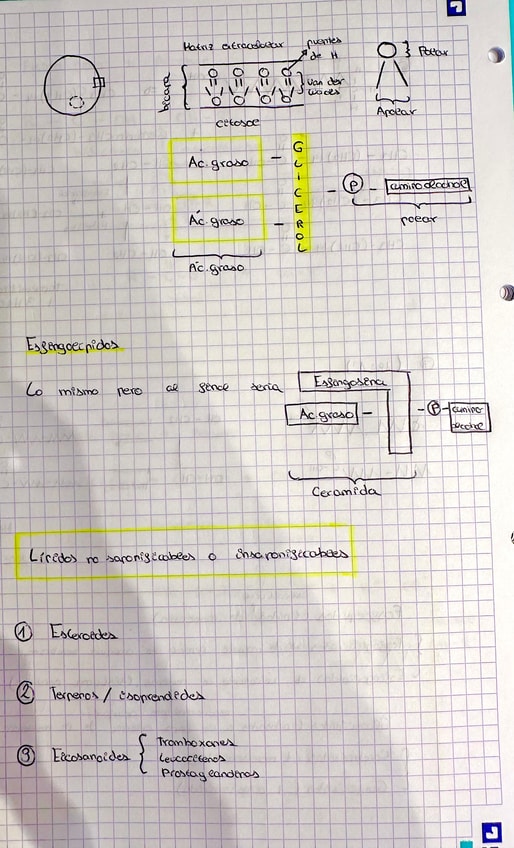 Matriz extracelular
puentes
de H
Polar
bicapa
van der
Waals
Apolar
citosol
Ac. graso - GLICEROL - P - aminoalcohol
Ác. graso -
polar
Ác. graso
Esfingolípidos
Lo mismo pero al final sería
Esfingosina
Ac. graso - - P - amino
alcohol
Ceramida
Lípidos no saponificables o insaponificables
① Esteroides
② Terpenos / isoprenoides
③ Eicosanoides { Tromboxanos
Leucotrienos
Prostaglandinas